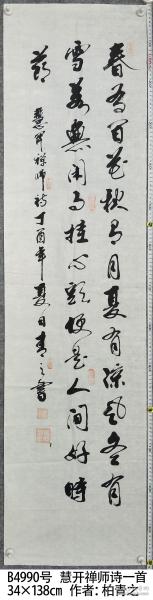 春有百花秋有月夏有凉风冬有
雪若无闲事挂心头便是人间好时
节
慧开禅师诗丁酉年夏日青之书
B4990号 慧开禅师诗一首
34×138cm 作者:柏青之